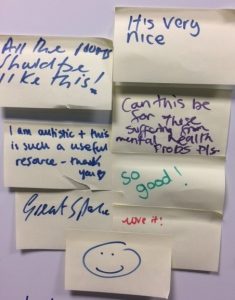 All the rooms
should be
like this!
It is very
nice
Can this be
for those
suffering from
mental health
Probs pls.
I am autistic + this
is such a useful
resource - thank
you
so
good!
Great Space
Love it!